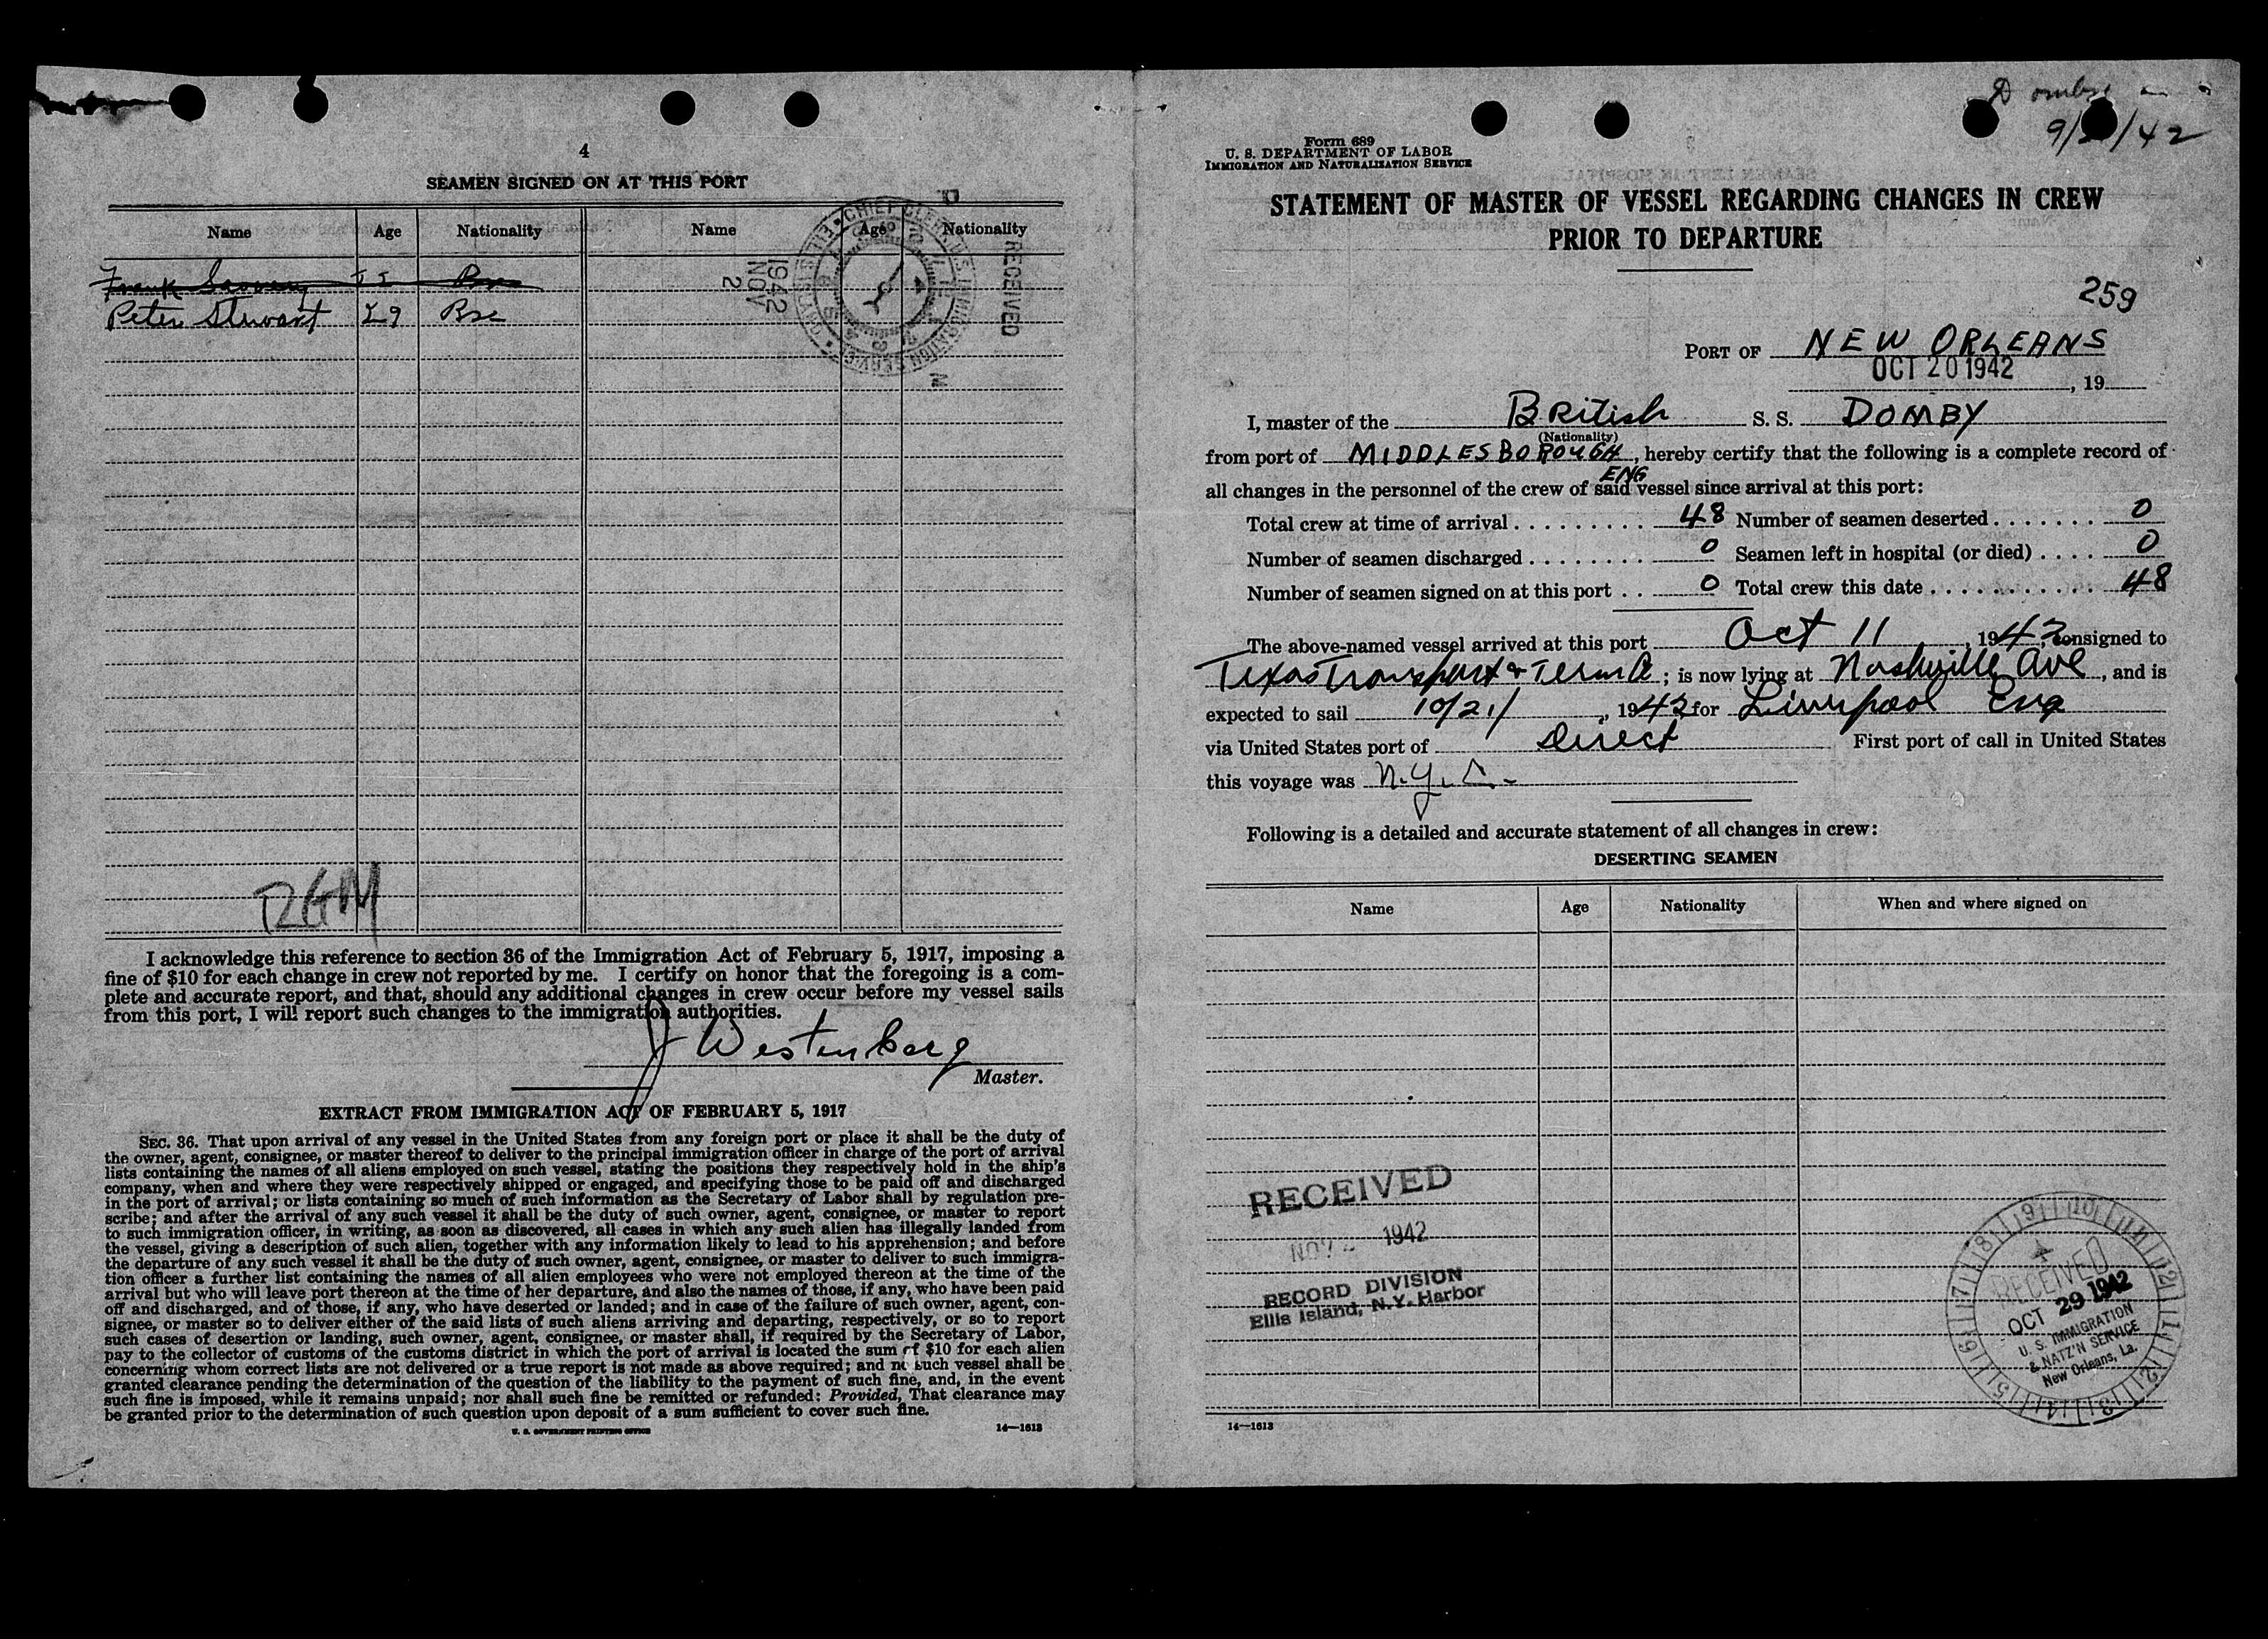 4
SEAMEN SIGNED ON AT THIS PORT
Name Age Nationality Name Age Nationality
Frank
Peter Stewart 29
RECEIVED
1942
NOV
2
CHIEF CLERK U.S. IMMIGRATION SERVICE
I acknowledge this reference to section 36 of the Immigration Act of February 5, 1917, imposing a
fine of $10 for each change in crew not reported by me. I certify on honor that the foregoing is a com-
plete and accurate report, and that, should any additional changes in crew occur before my vessel sails
from this port, I will report such changes to the immigration authorities.
J Westenborg
Master.
EXTRACT FROM IMMIGRATION ACT OF FEBRUARY 5, 1917
SEC. 36. That upon arrival of any vessel in the United States from any foreign port or place it shall be the duty of
the owner, agent, consignee, or master thereof to deliver to the principal immigration officer in charge of the port of arrival
lists containing the names of all aliens employed on such vessel, stating the positions they respectively hold in the ship's
company, when and where they were respectively shipped or engaged, and specifying those to be paid off and discharged
in the port of arrival; or lists containing so much of such information as the Secretary of Labor shall by regulation pre-
scribe; and after the arrival of any such vessel it shall be the duty of such owner, agent, consignee, or master to report
to such immigration officer, in writing, as soon as discovered, all cases in which any such alien has illegally landed from
the vessel, giving a description of such alien, together with any information likely to lead to his apprehension; and before
the departure of any such vessel it shall be the duty of such owner, agent, consignee, or master to deliver to such immigra-
tion officer a further list containing the names of all alien employees who were not employed thereon at the time of the
arrival but who will leave port thereon at the time of her departure, and also the names of those, if any, who have been paid
off and discharged, and of those, if any, who have deserted or landed; and in case of the failure of such owner, agent, con-
signee, or master so to deliver either of the said lists of such aliens arriving and departing, respectively, or so to report
such cases of desertion or landing, such owner, agent, consignee, or master shall, if required by the Secretary of Labor,
pay to the collector of customs of the customs district in which the port of arrival is located the sum of $10 for each alien
concerning whom correct lists are not delivered or a true report is not made as above required; and no such vessel shall be
granted clearance pending the determination of the question of the liability to the payment of such fine, and, in the event
such fine is imposed, while it remains unpaid; nor shall such fine be remitted or refunded: Provided, That clearance may
be granted prior to the determination of such question upon deposit of a sum sufficient to cover such fine.
U. S. GOVERNMENT PRINTING OFFICE 14—1613
9/ /42
Form 689
U. S. DEPARTMENT OF LABOR
IMMIGRATION AND NATURALIZATION SERVICE
STATEMENT OF MASTER OF VESSEL REGARDING CHANGES IN CREW
PRIOR TO DEPARTURE
259
PORT OF NEW ORLEANS
OCT 20 1942, 19
I, master of the British S. S. DOMBY
(Nationality)
from port of MIDDLESBOROUGH, hereby certify that the following is a complete record of
ENG
all changes in the personnel of the crew of said vessel since arrival at this port:
Total crew at time of arrival 48 Number of seamen deserted 0
Number of seamen discharged 0 Seamen left in hospital (or died) 0
Number of seamen signed on at this port 0 Total crew this date 48
The above-named vessel arrived at this port Oct 11, 1942, consigned to
Texas Transport & Term Co; is now lying at Nashville Ave, and is
expected to sail 10/21/, 1942 for Liverpool Eng
via United States port of Direct First port of call in United States
this voyage was N.Y.C.
Following is a detailed and accurate statement of all changes in crew:
DESERTING SEAMEN
Name Age Nationality When and where signed on
RECEIVED
NOV 2 1942
RECORD DIVISION
Ellis Island, N.Y. Harbor
RECEIVED
OCT 29 1942
U. S. IMMIGRATION
& NATZ'N SERVICE
New Orleans, La.
14—1613